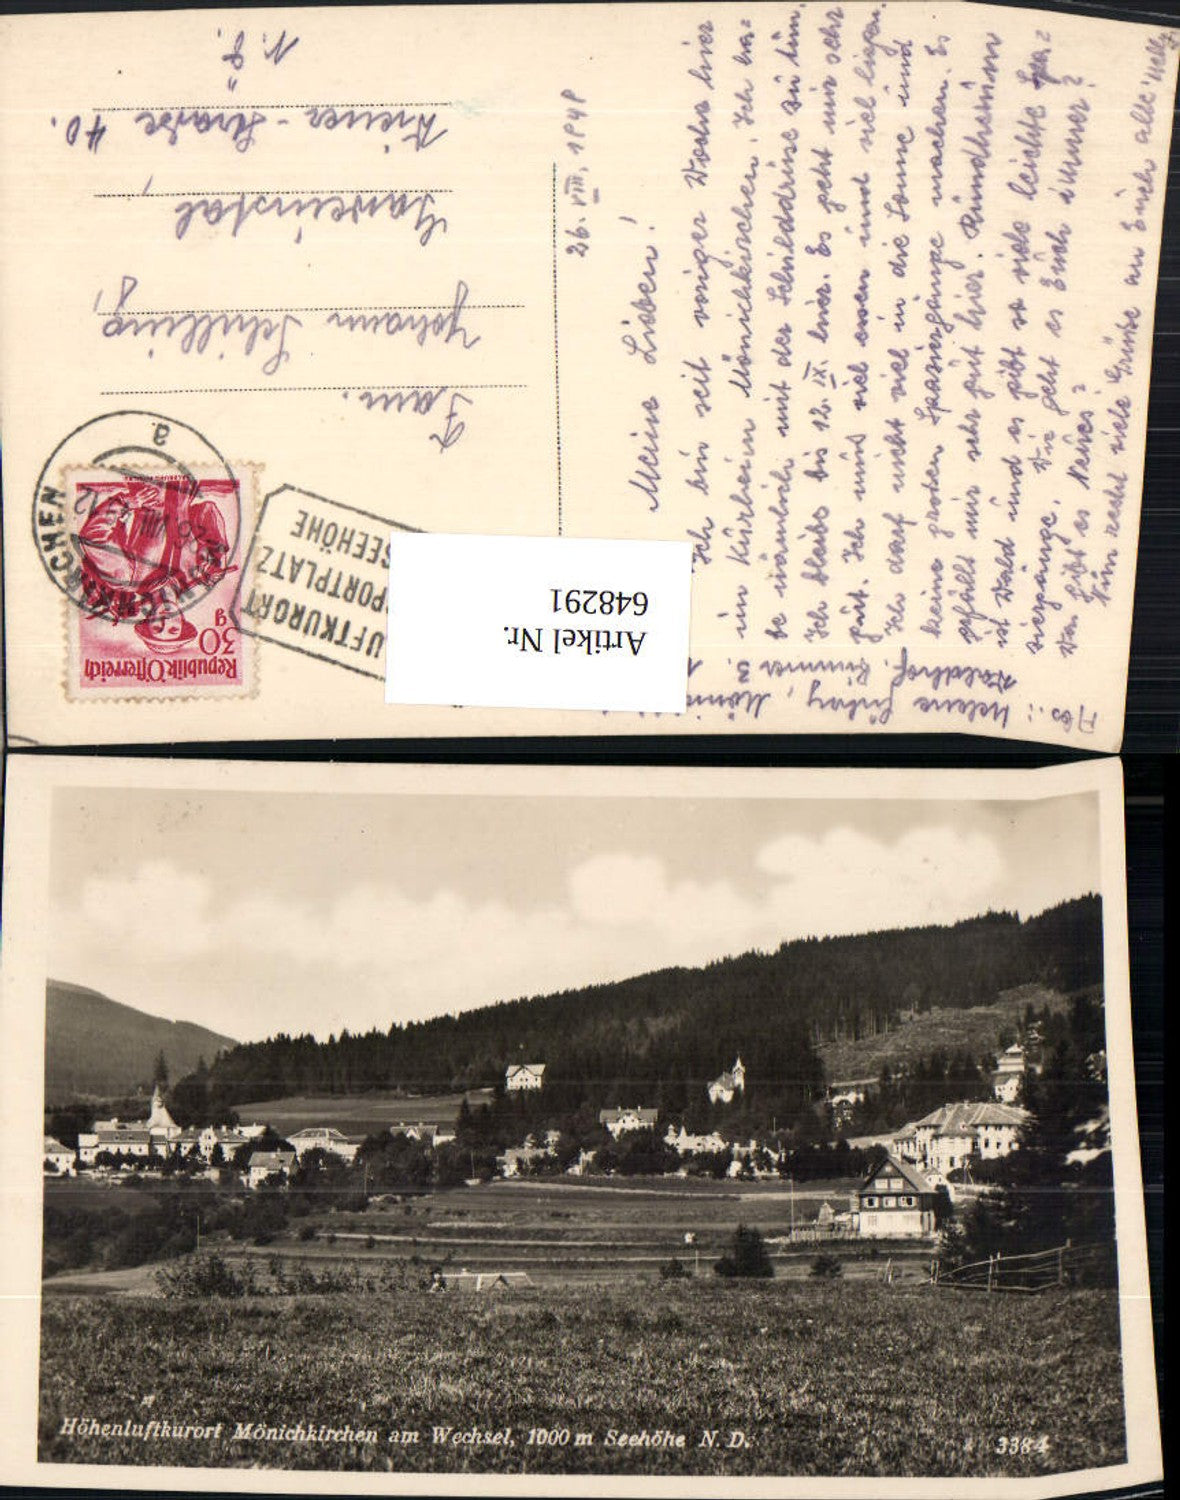 26. VIII. 1948
Meine Lieben!
Ich bin seit voriger Woche hier
im Kurheim Mönichkirchen. Ich ha=
be nämlich mit der Schilddrüse zu tun.
Ich bleibe bis 12. IX. hier. Es geht mir sehr
gut. Ich muß viel essen und viel liegen.
Ich darf nicht viel in die Sonne und
keine großen Spaziergänge machen. Es
gefällt mir sehr gut hier. Rundherum
ist Wald und es gibt so viele leichte Spa=
ziergänge. Wie geht es Euch immer?
Was gibt es Neues?
Nun recht viele Grüße an Euch alle
Abs.: Helene
Waldhof, Zimmer 3.
Fam.
Johann Schilling,
Gaweinstal
Wiener-Straße 40.
N. Ö.
Republik Österreich
30
g
MÖNICHKIRCHEN
26. VIII. 12
a
LUFTKURORT
SPORTPLATZ
SEEHÖHE
Artikel Nr.
648291
Höhenluftkurort Mönichkirchen am Wechsel, 1000 m Seehöhe N. D.
3384